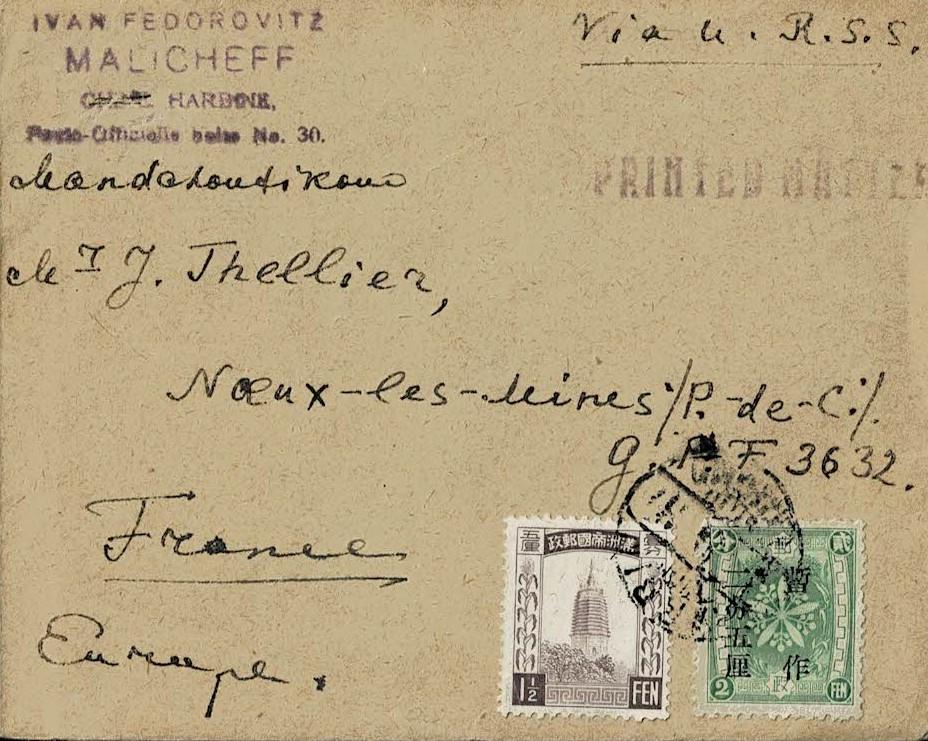 IVAN FEDOROVITZ
MALICHEFF
HARBINE,
No. 30.
Via U.R.S.S.
PRINTED MATTER
Mandchoutikouo
Mr J. Thellier,
Nœux-les-Mines/P.-de-C./.
G.P.F 3632.
France
Europe.
五厘
政郵國帝洲滿
壹分
1½ FEN
貳
郵
暫作
二分五厘
政
2 FEN